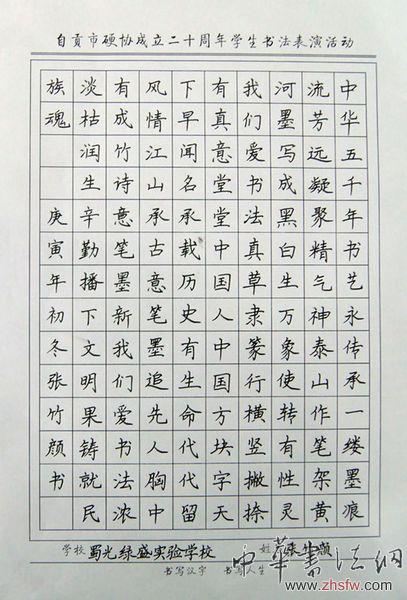 自贡市硬协成立二十周年学生书法表演活动
中华五千年书艺永传承一缕墨痕
流芳远凝聚精气神泰山作笔架黄
河墨写成黑白生万象使转有性灵
我们爱书法真草隶篆行横竖撇捺
有真意堂堂中国人中国方块字天
下早闻名承载历史有生命代代留
风情江山承古意笔墨追先人胸中
有成竹诗意笔墨新我们爱书法浓
淡枯润生辛勤播下文明果铸就民
族魂 庚寅年初冬张竹颜书
学校 蜀光绿盛实验学校 姓 张竹颜
书写汉字 书写人生
中华书法网
www.zhsfw.com